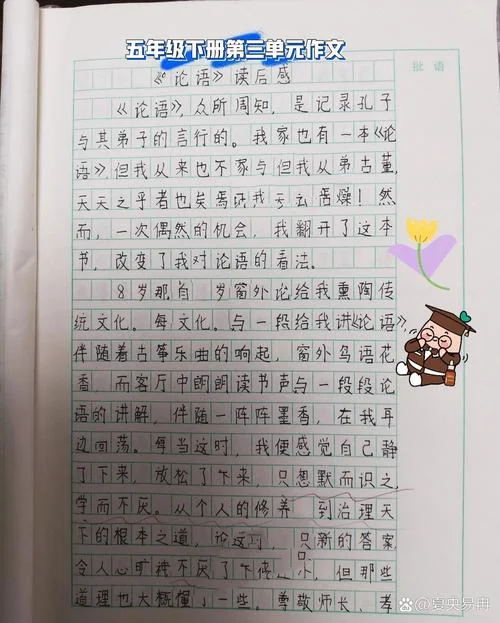 五年级下册第三单元作文
批语
《论语》读后感
《论语》，众所周知，是记录孔子
与其弟子的言行的。我家也有一本《论
语》但我从来也不 与但我从弟古董，
天天之乎者也矣焉 我 燥！然
而，一次偶然的机会，我翻开了这本
书，改变了我对论语的看法。
8岁那 岁窗外论给我熏陶传
统文化。每文化。与一段给我讲《论语》，
伴随着古筝乐曲的响起，窗外鸟语花
香，而客厅中朗朗读书声与一段段论
语的讲解，伴随一阵阵墨香，在我耳
边回荡。每当这时，我便感觉自己静
了下来，放松了下来，只想默而识之，
学而不厌。从个人的修养 到治理天
下的根本之道，论这 ，只新的答案
令人心旷 不厌了下 ，但那些
道理也大概懂了一些。尊敬师长、孝
夏央易冉